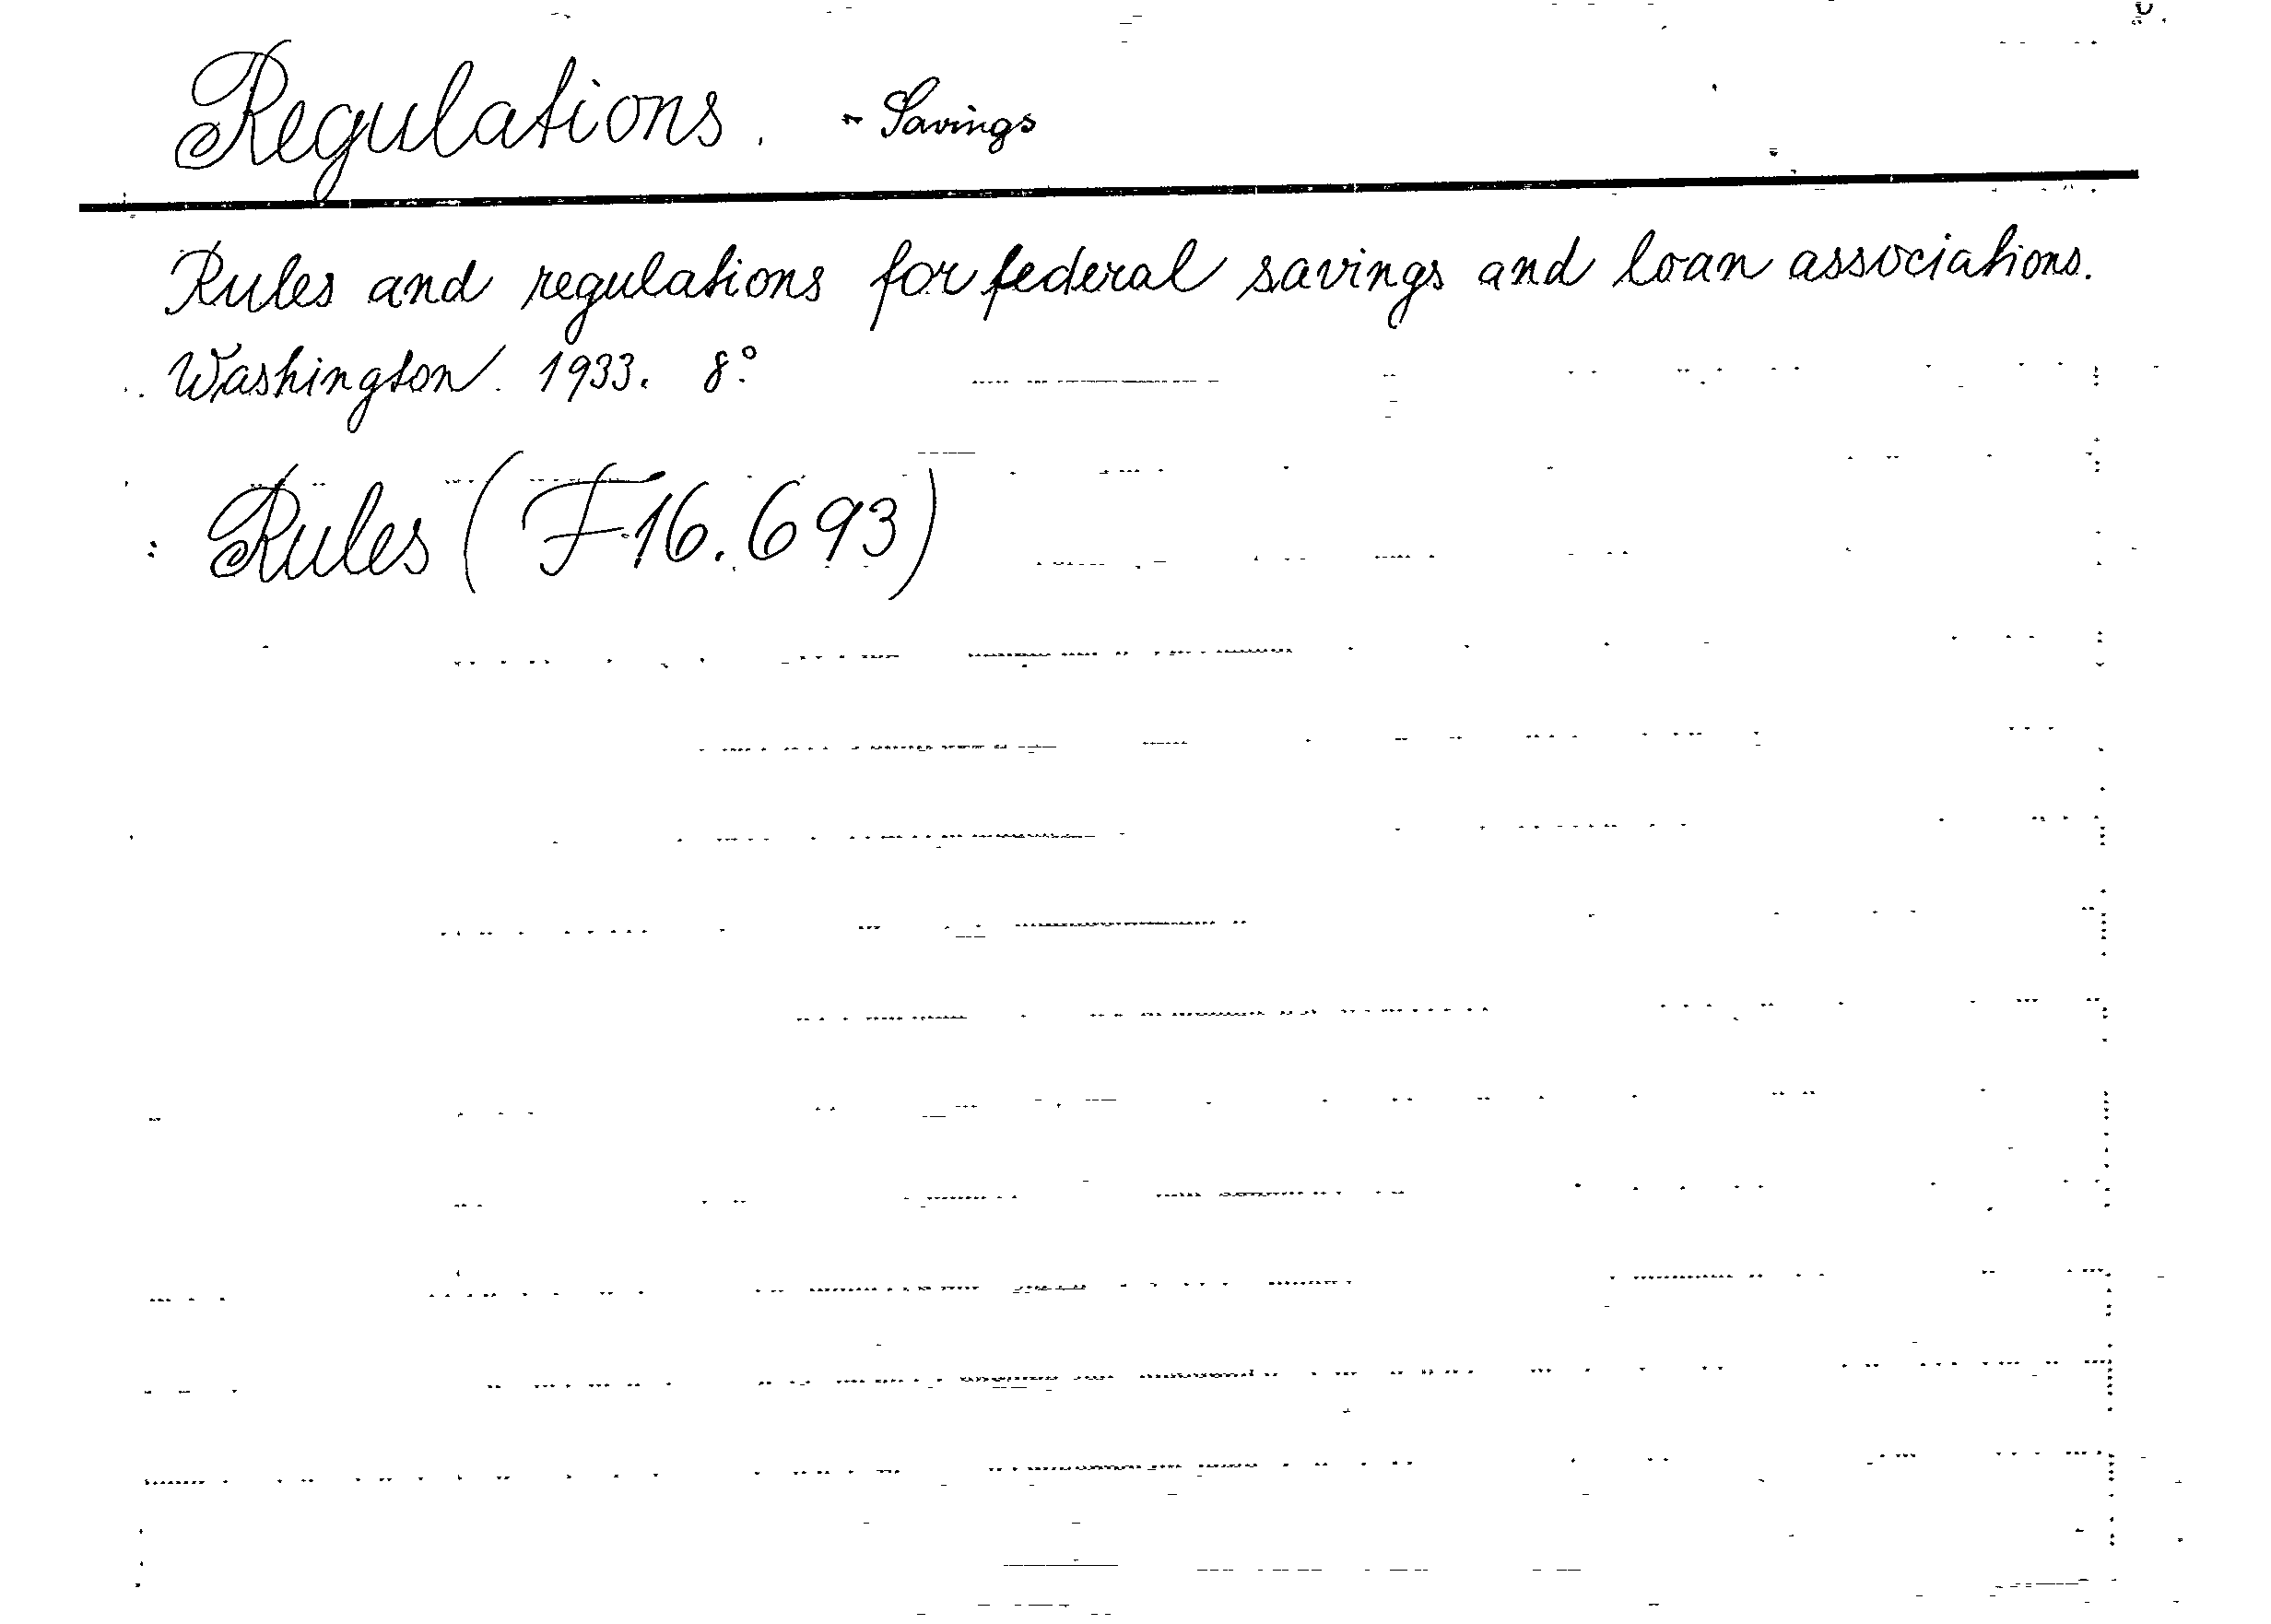 Regulations. - Savings
Rules and regulations for federal savings and loan associations.
Washington. 1933. 8°.
Rules (F 16.693)